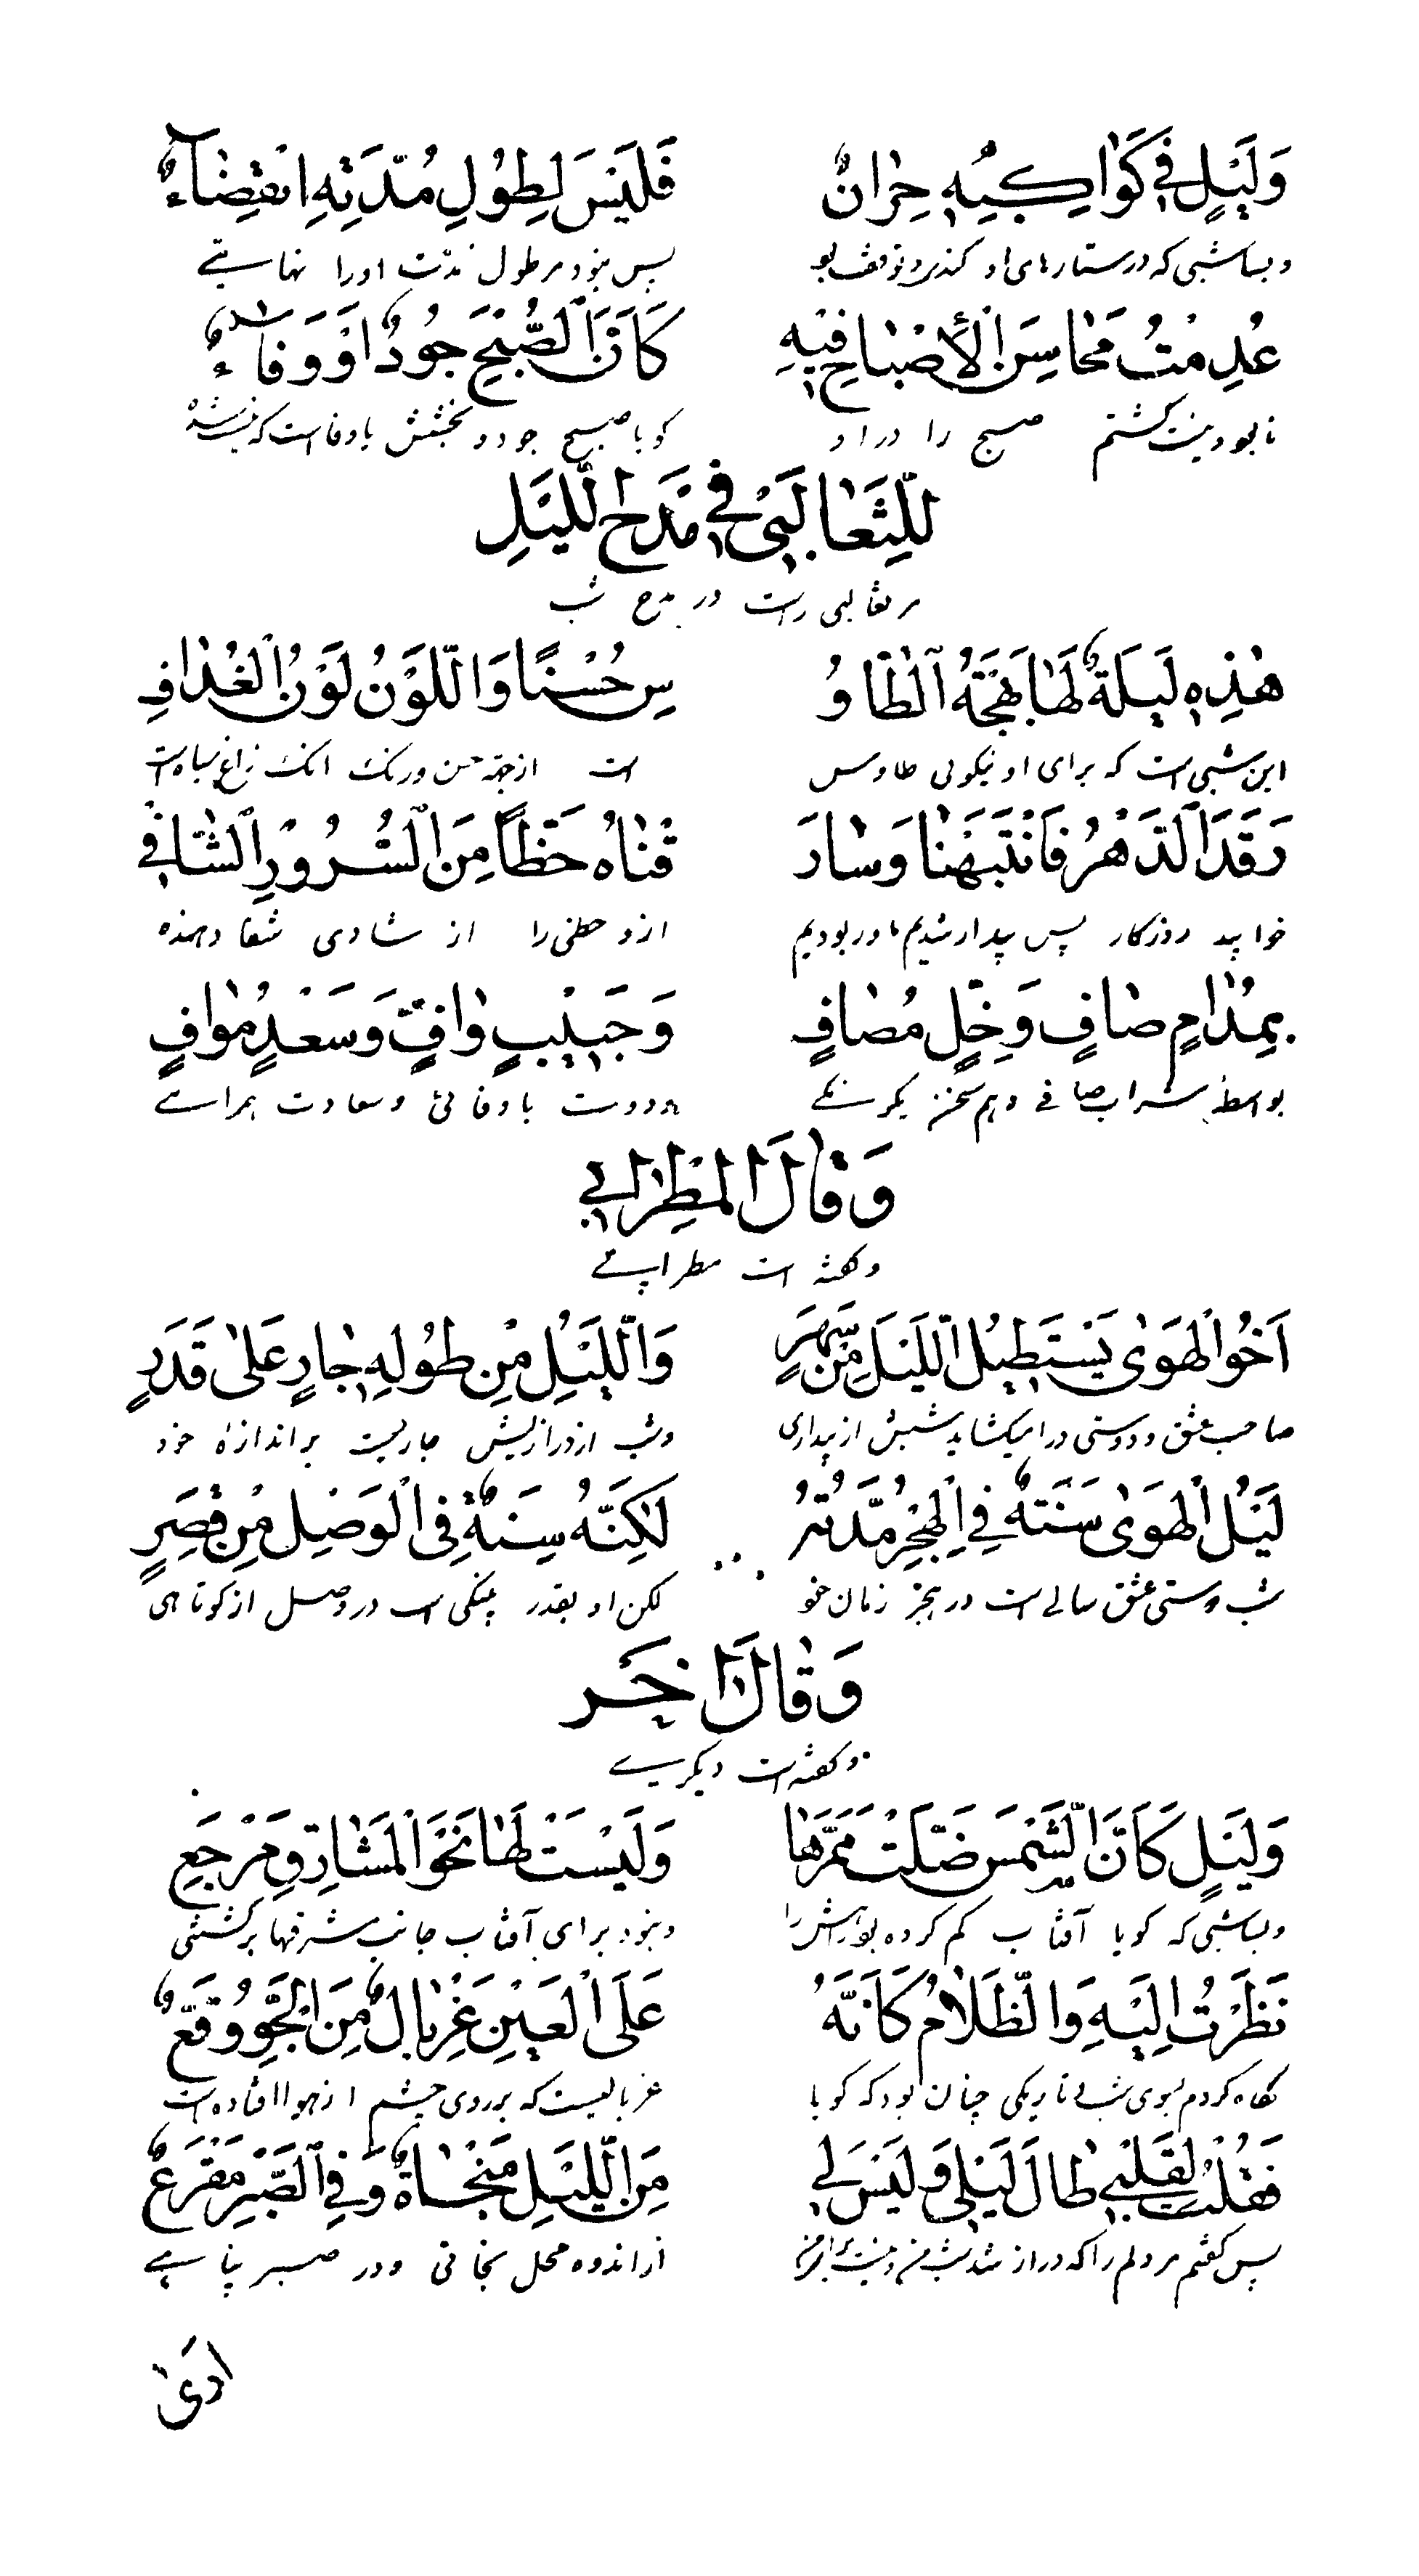 وَلَيْلٍ فِي كَوَاكِبِهِ حِرَانٌ فَلَيْسَ لِطُولِ مُدَّتِهِ انْقِضَاءٌ
و بسا شبی که در ستارهای او کندی و توقف بود پس نبود مر طول مدّت او را نهایتی
عُدِمْتُ مَحَاسِنَ الْأَصْبَاحِ فِيهِ كَأَنَّ الصُّبْحَ جُودٌ أَوْ وَفَاءٌ
نابود و نیست گشتم صبح را در او گویا صبح جود و بخشش یا وفا است که
لِلثَّعَالِبِي فِي مَدْحِ اللَّيْلِ
مر ثعالبی راست در مدح شب
هٰذِهِ لَيْلَةٌ لَهَا بَهْجَةُ الطَّاوُ سِ حُسْنًا وَاللَّوْنُ لَوْنُ الْغُدَافِ
این شبی است که برای او نیکوئی طاوس است از جهة حسن و رنک انک زاغ سیاه است
رَقَدَ الدَّهْرُ فَانْتَبَهْنَا وَسَارَ قْنَاهُ حَظًّا مِنَ السُّرُورِ الشَّافِي
خوابید روزکار پس بیدار شدیم ما و ربودیم از و حظی را از شادی شفا دهنده
بِمُدَامٍ صَافٍ وَخِلٍّ مُصَافٍ وَحَبِيبٍ وَافٍ وَسَعْدٍ مُوَافٍ
بواسطه شراب صافی و هم سخن یکرنکی و دوست با وفائی و سعادت همراهی
وَقَالَ الْمِطْرَابِي
و کفته است مطرابی
أَخُو الْهَوَى يَسْتَطِيلُ اللَّيْلَ مِنْ سَهَرٍ وَاللَّيْلُ مِنْ طُولِهِ جَارٍ عَلَى قَدَرٍ
صاحب عشق و دوستی درا میکشاید شبش از بیداری و شب از درازیش جاریست بر اندازه خود
لَيْلُ الْهَوَى سَنَةٌ فِي الْهَجْرِ مُدَّتُهُ لَكِنَّهُ سِنَةٌ فِي الْوَصْلِ مِنْ قِصَرٍ
شب دوستی عشق سالی است در هجر زمان خود لکن او بقدر پینکی است در وصل از کوتاهی
وَقَالَ آخَر
و کفته است دیکری
وَلَيْلٍ كَأَنَّ الشَّمْسَ ضَلَّتْ مَمَرَّهَا وَلَيْسَتْ لَهَا نَحْوَ الْمَشَارِقِ مَرْجَعِ
و بسا شبی که کویا آفتاب کم کرده بود راهش را و نبود برای آفتاب جانب مشرقها برکشتنی
نَظَرْتُ إِلَيْهِ وَالظَّلَامُ كَأَنَّهُ عَلَى الْعَيْنِ غِرْبَالٌ مِنَ الْجَوِّ وُقَّعٌ
نکاه کردم بسوی شب و تاریکی چنان بود که کویا غربالیست که بر روی چشم از هوا افتاده است
فَقُلْتُ لِقَلْبِي طَالَ لَيْلِي وَلَيْسَ لِي مِنَ اللَّيْلِ مَنْجَاةٌ وَفِي الصَّبْرِ مَفْزَعٌ
پس کفتم مر دلم را که دراز شد شب من و نیست از اندوه محل نجاتی و در صبر پناهی
اری